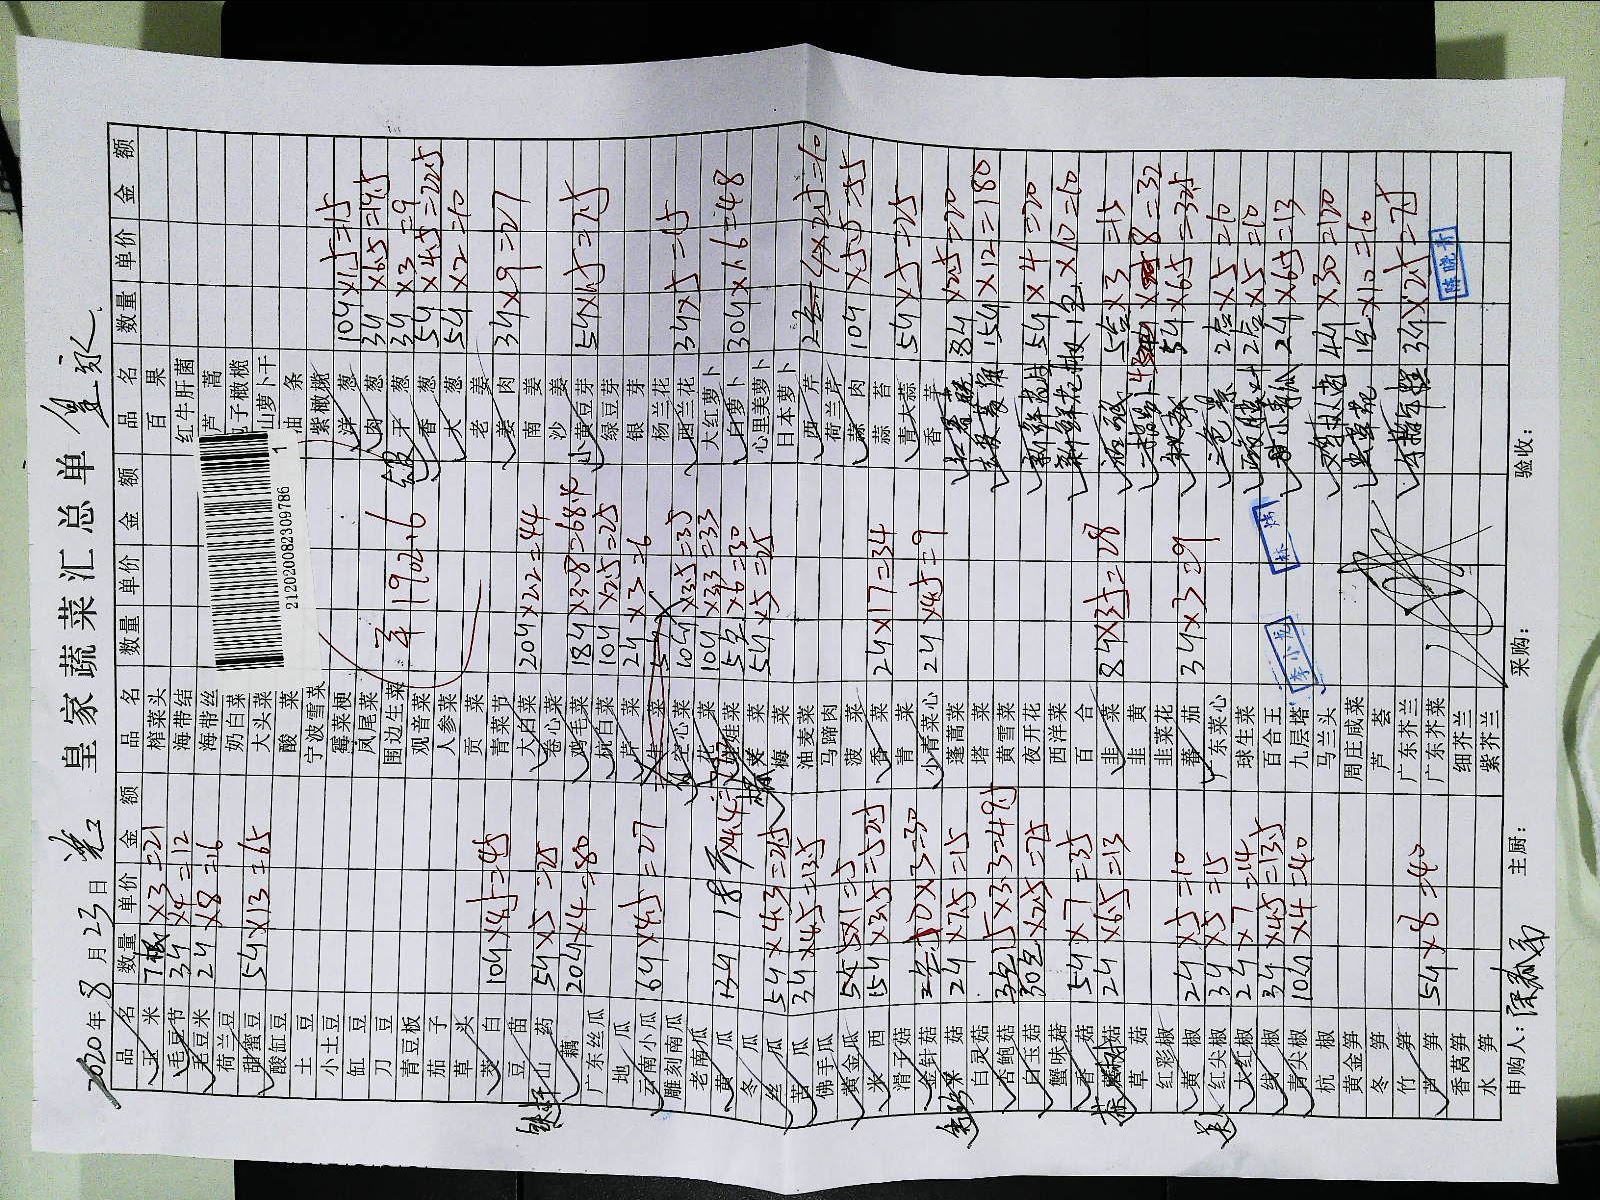 皇家蔬菜汇总单 皇家
2020年8月23日
品名 数量 单价 金额 品名 数量 单价 金额 品名 数量 单价 金额
玉米 7根 ×3=21 榨菜头 百果
毛豆节 3斤 ×4=12 海带结 红牛肝菌
毛豆米 2斤 ×8=16 海带丝 芦蒿
荷兰豆 奶白菜 橄榄
甜蜜豆 5斤 ×13=65 大头菜 山萝卜干
酸缸豆 酸菜 油条
土豆 宁波雪菜 紫橄榄
小土豆 霉菜梗 洋葱 10斤 ×1.5=15
缸豆 凤尾菜 肉葱 3斤 ×6.5=19.5
刀豆 围边生菜 干葱 3斤 ×3=9
青豆板 观音菜 香葱 5斤 ×4.5=22.5
茄子 人参菜 大葱 5斤 ×2=10
草头 贡菜 老姜
茭白 10斤 ×4.5=45 青菜节 姜肉 3斤 ×9=27
豆苗 大白菜 20斤 ×2.2=44 南姜
山药 5斤 ×5=25 卷心菜 沙姜
藕 20斤 ×4=80 鸡毛菜 18斤 ×3.8=68.4 黄豆芽 5斤 ×1.5=7.5
广东丝瓜 杭白菜 10斤 ×2.5=25 绿豆芽
地瓜 芹菜 2斤 ×3=6 银芽
云南小瓜 6斤 ×4.5=27 生菜 杨兰花
雕刻南瓜 空心菜 10斤 ×3.5=35 西兰花 3斤 ×5=15
老南瓜 花菜 10斤 ×3.3=33 大红萝卜
黄瓜 18斤 娃娃菜 5包 ×6=30 白萝卜 30斤 ×1.6=48
冬瓜 菜 5斤 ×5=25 心里美萝卜
丝瓜 5斤 ×4.3=21.5 海菜 日本萝卜
苦瓜 3斤 ×4.5=13.5 油麦菜 西芹 4×2.5=10
佛手瓜 马蹄肉 荷兰芹
黄金瓜 5×1=5 菠菜 蒜肉 10斤 ×5.5=55
米西 15斤 ×3.5=52.5 香菜 2斤 ×17=34 蒜苔
滑子菇 青菜 青大蒜 5斤 ×5=25
金针菇 10×3=30 小青菜心 2斤 ×4.5=9 香芋
菇 2斤 ×7.5=15 蓬蒿菜 8斤 ×2.5=20
白灵菇 塔菜 15斤 ×12=180
杏鲍菇 15×3.3=49.5 黄雪菜
白玉菇 30包 ×2.5=75 夜开花 新鲜花生 5斤 ×4=20
蟹味菇 西洋菜 1包 ×10=10
香菇 5斤 ×7=35 百合
菇 2斤 ×6.5=13 韭菜 8斤 ×3.5=28 5盒 ×3=15
草菇 韭黄 8=32
红彩椒 韭菜花 5斤 ×6.5=32.5
黄椒 2斤 ×5=10 番茄 3斤 ×3=9 2盒 ×5=10
红尖椒 3斤 ×5=15 广东菜心 2盒 ×5=10
大红椒 2斤 ×7=14 球生菜 小青瓜 2斤 ×6.5=13
线椒 3斤 ×4.5=13.5 百合王
青尖椒 10斤 ×4=40 九层塔 4斤 ×30=120
杭椒 马兰头 1盒 ×10=10
黄金笋 周庄咸菜
冬笋 芦荟 3斤 ×2.5=7.5
竹笋 广东芥兰
芦笋 5斤 ×8=40 广东芥菜
香莴笋 细芥兰
水笋 紫芥兰
1902.6
212020082309786 1
李小龙
陈晓青
申购人： 主厨： 采购： 验收：